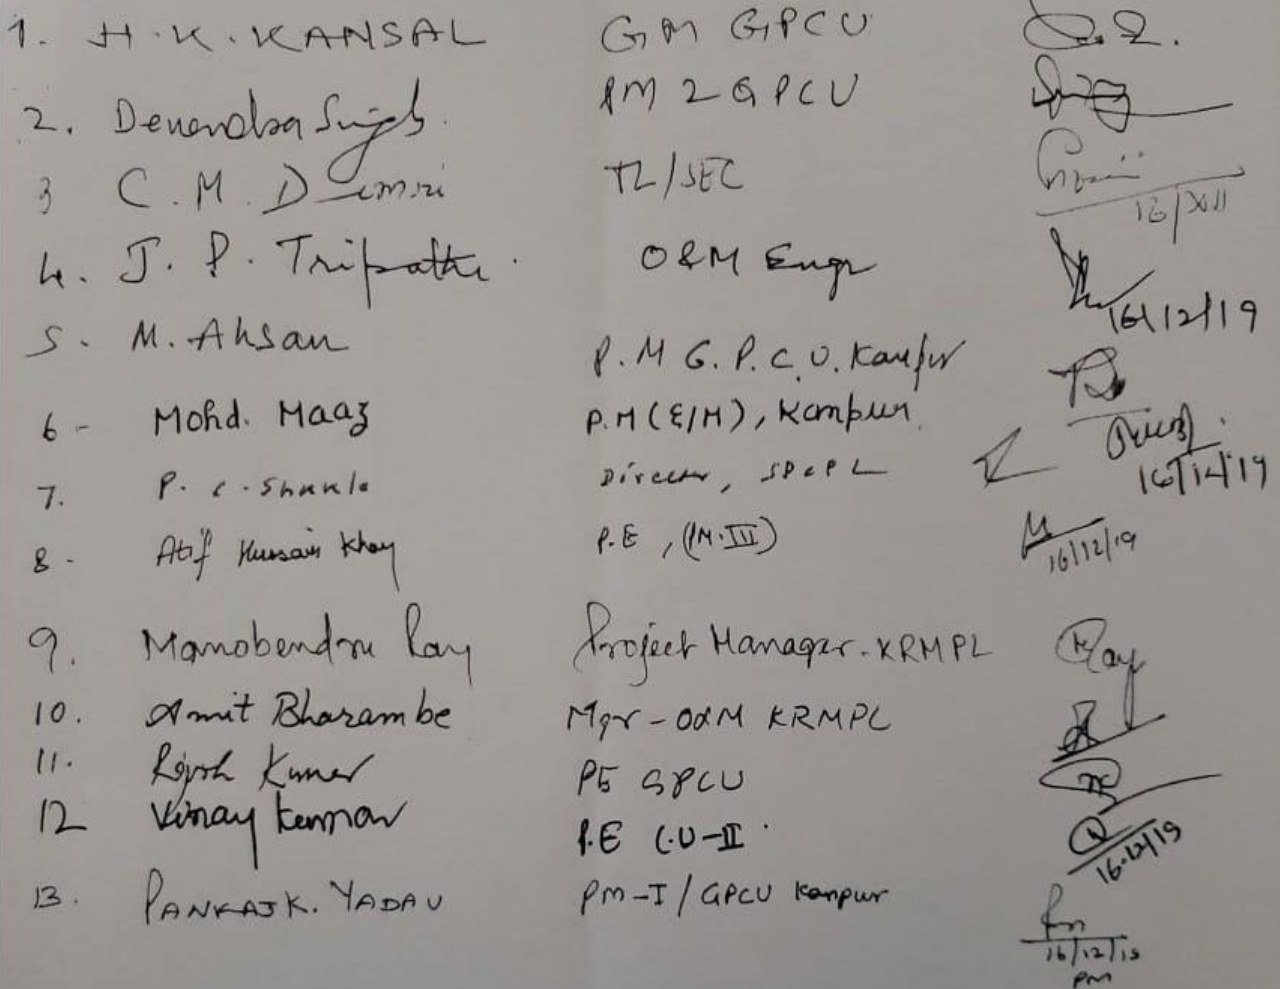 1. H.K. KANSAL GM GPCU
2. Devendra Singh PM 2 GPCU
3 C.M. Dimri TL/SEC 16/XII
4. J.P. Tripathi O&M Engr 16/12/19
5. M. Ahsan P.M G.P.C.U. Kanpur
6- Mohd. Maaz P.M (E/M), Kanpur 16/12/19
7. P.C. Shukla Director, SPCPL
8- Atif Hussain Khan P.E, (PM.III) 16/12/19
9. Manobendra Ray Project Manager-KRMPL Ray
10. Amit Bharambe Mgr-O&M KRMPL
11. Rajesh Kumar PE GPCU
12 Vinay Kumar P.E C.U-II 16.12/19
13. PANKAJ K. YADAV PM-I/GPCU Kanpur 16/12/19
PM